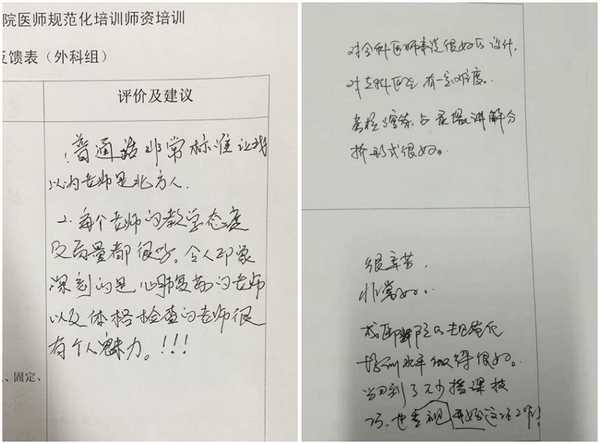 院医师规范化培训师资培训
反馈表（外科组）
评价及建议
1.普通话非常标准让我
以为老师是北方人.
2.每个老师的教学态度
及质量都很好。令人印象
深刻的是心肺复苏的老师
以及体格检查的老师很
有个人魅力。!!!
、固定、
对全科医师来说很好的设计.
对专科医生有一定难度.
与录像讲解分
析形式很好。
很辛苦.
非常好..
规范化
培训做得很好。
学到了不少授课技
巧.